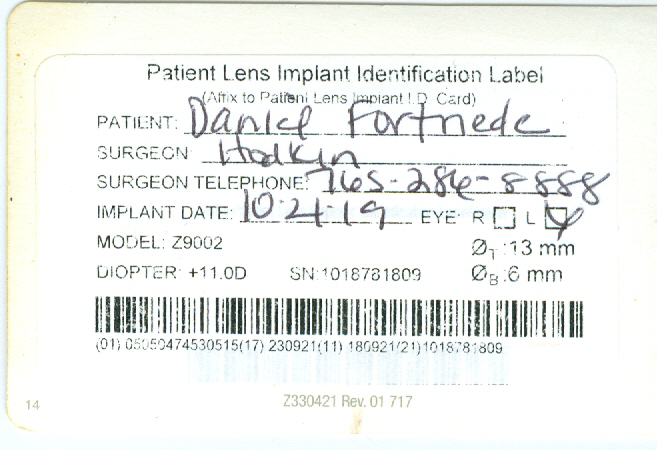 Patient Lens Implant Identification Label
(Affix to Patient Lens Implant I.D. Card)
PATIENT: Daniel Fortnede
SURGEON Hodkin
SURGEON TELEPHONE: 765-286-8888
IMPLANT DATE: 10-21-19 EYE: R L
MODEL: Z9002 ØT:13 mm
DIOPTER: +11.0D SN:1018781809 ØB:6 mm
(01) 05050474530515(17) 230921(11) 180921(21)1018781809
14 Z330421 Rev. 01 717